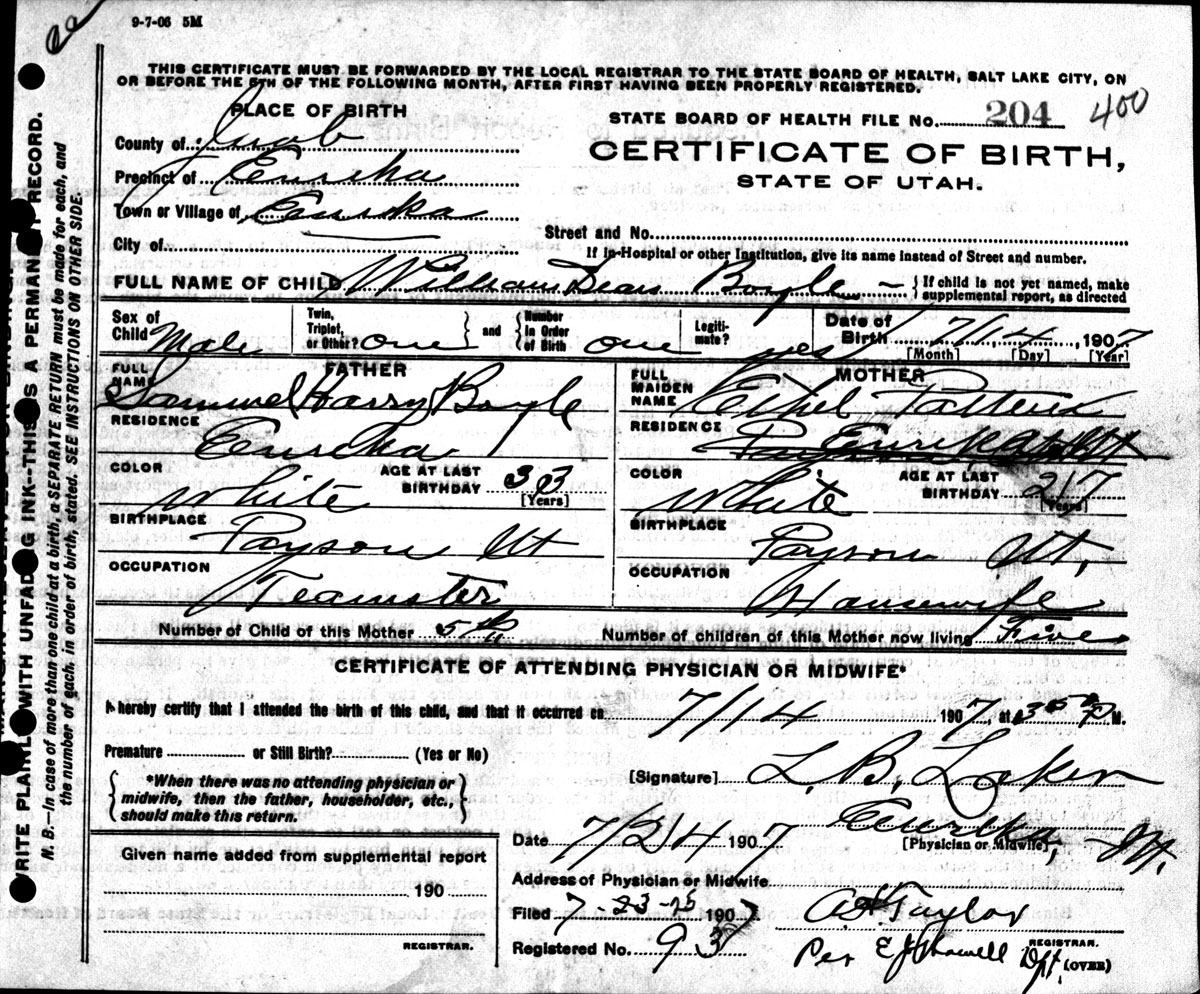 9-7-06 5M
THIS CERTIFICATE MUST BE FORWARDED BY THE LOCAL REGISTRAR TO THE STATE BOARD OF HEALTH, SALT LAKE CITY, ON
OR BEFORE THE 5TH OF THE FOLLOWING MONTH, AFTER FIRST HAVING BEEN PROPERLY REGISTERED.
PLACE OF BIRTH
STATE BOARD OF HEALTH FILE No. 204 400
County of Juab
CERTIFICATE OF BIRTH,
STATE OF UTAH.
Precinct of Eureka
Town or Village of Eureka
City of
Street and No.
If in Hospital or other Institution, give its name instead of Street and number.
FULL NAME OF CHILD William Dean Boyle { If child is not yet named, make supplemental report, as directed
Sex of Child Male
Twin, Triplet, or Other? one } and { Number in Order of Birth one
Legitimate? yes
Date of Birth 7/14, 1907
[Month] [Day] [Year]
FATHER
FULL NAME Samuel Harry Boyle
RESIDENCE Eureka
COLOR White
AGE AT LAST BIRTHDAY 33
[Years]
BIRTHPLACE Payson Ut
OCCUPATION Teamster
MOTHER
FULL MAIDEN NAME Ethel
RESIDENCE Eureka Ut
COLOR White
AGE AT LAST BIRTHDAY 27
[Years]
BIRTHPLACE Payson Ut,
OCCUPATION Housewife
Number of Child of this Mother 5th
Number of children of this Mother now living Five
CERTIFICATE OF ATTENDING PHYSICIAN OR MIDWIFE*
I hereby certify that I attended the birth of this child, and that it occurred on 7/14 1907, at P. M.
Premature or Still Birth? (Yes or No)
{ *When there was no attending physician or
midwife, then the father, householder, etc.,
should make this return. }
[Signature] L. B. Laker
Eureka, Ut.
[Physician or Midwife]
Date 7/24 1907
Address of Physician or Midwife
Filed 7-23-25 190
Taylor
REGISTRAR.
Registered No. 93
Per E J Howell Dpt.
(OVER)
Given name added from supplemental report
190
REGISTRAR.
WRITE PLAINLY WITH UNFADING INK--THIS IS A PERMANENT RECORD.
N. B.—In case of more than one child at a birth, a SEPARATE RETURN must be made for each, and
the number of each, in order of birth, stated. SEE INSTRUCTIONS ON OTHER SIDE.